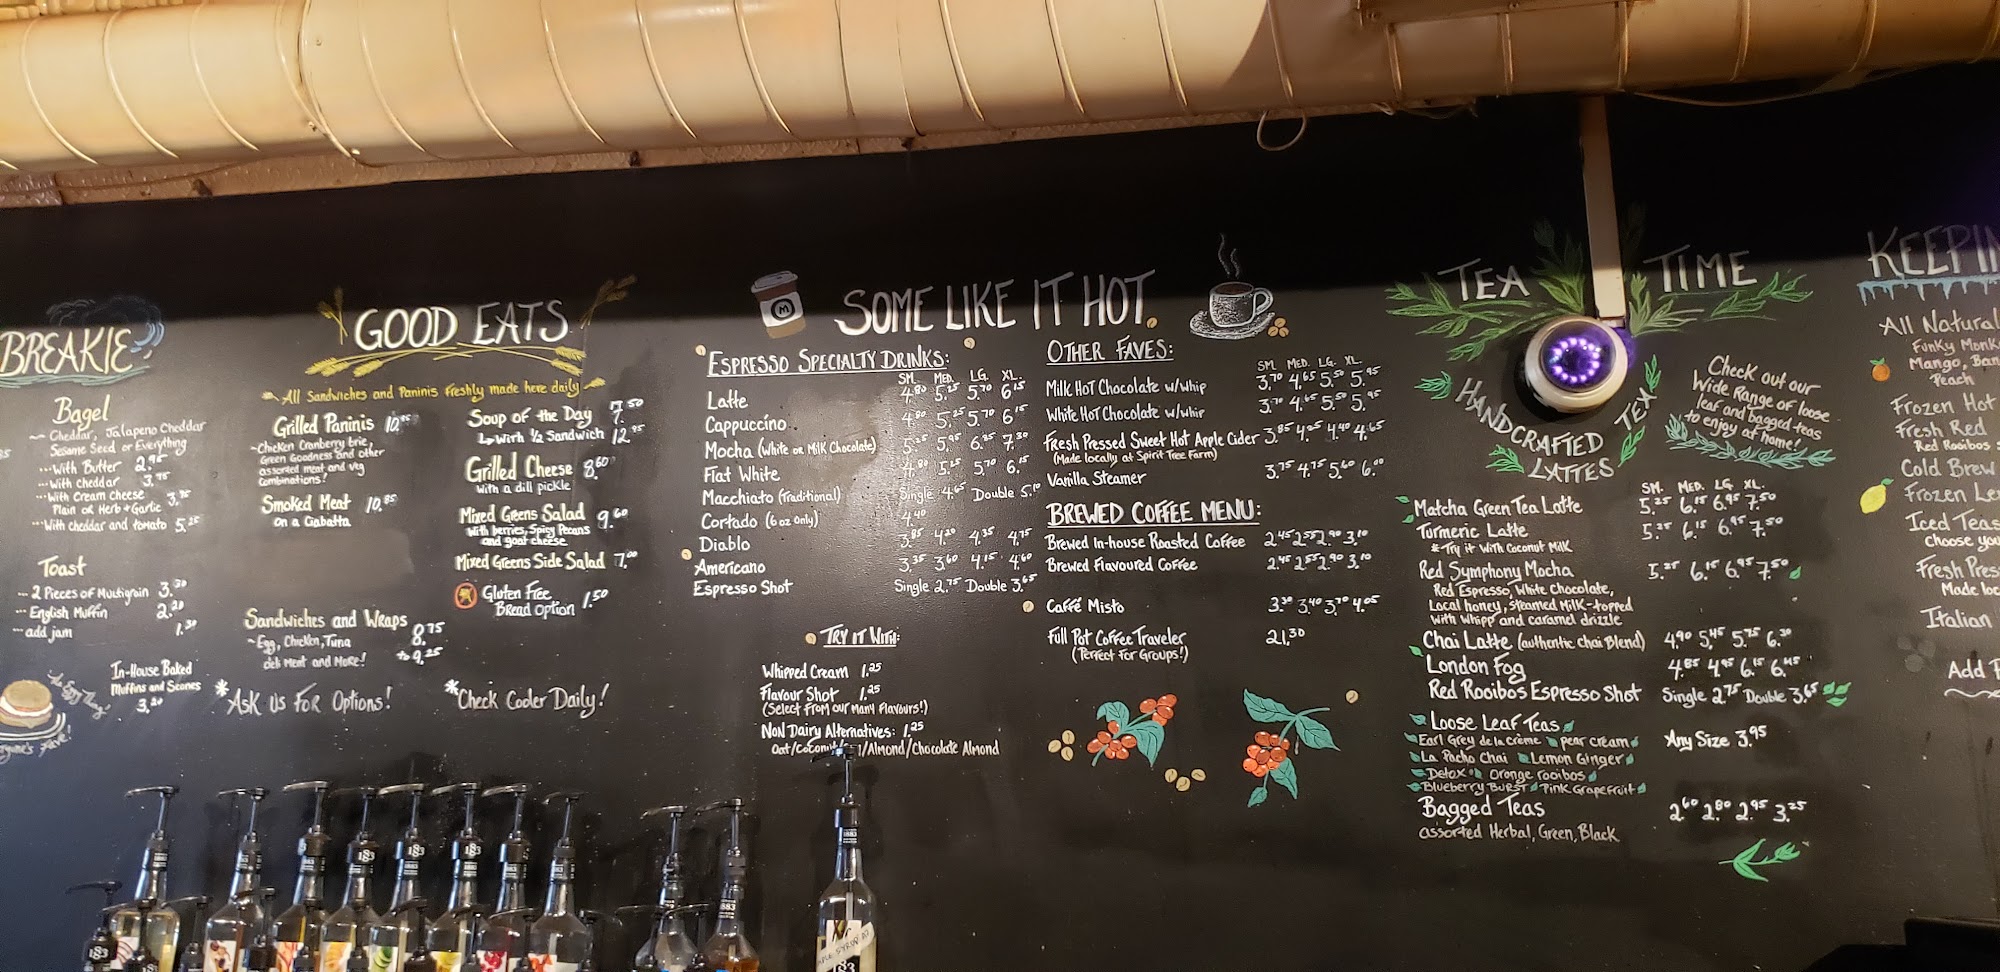 BREAKIE
Bagel
Cheddar, Jalapeno Cheddar
Sesame Seed or Everything
...With Butter 2.95
...With cheddar 3.75
...With Cream Cheese 3.75
Plain or Herb + Garlic
...With cheddar and tomato 5.25
Toast
... 2 Pieces of Multigrain 3.30
... English Muffin 2.20
... add jam 1.30
In-House Baked
Muffins and Scones
3.20
GOOD EATS
All Sandwiches and Paninis freshly made here daily
Grilled Paninis 10.85
~Chicken Cranberry brie,
Green Goodness and other
assorted meat and veg
combinations!
Smoked Meat 10.85
on a Ciabatta
Sandwiches and Wraps
~Egg, Chicken, Tuna 8.75
deli Meat and More! to 9.25
*Ask Us For Options!
Soup of the Day 7.50
With 1/2 Sandwich 12.95
Grilled Cheese 8.60
with a dill pickle
Mixed Greens Salad 9.60
With berries, Spicy Pecans
and goat cheese
Mixed Greens Side Salad 7.00
Gluten Free
Bread Option 1.50
*Check Cooler Daily!
M
SOME LIKE IT HOT
ESPRESSO SPECIALTY DRINKS:
SM. MED. LG. XL.
Latte 4.80 5.25 5.70 6.15
Cappuccino 4.80 5.25 5.70 6.15
Mocha (White or Milk Chocolate) 5.25 5.95 6.85 7.30
Flat White 4.80 5.25 5.70 6.15
Macchiato (Traditional) Single 4.65 Double 5.10
Cortado (6 oz Only) 4.40
Diablo 3.85 4.20 4.35 4.75
Americano 3.35 3.60 4.15 4.60
Espresso Shot Single 2.75 Double 3.65
TRY IT WITH:
Whipped Cream 1.25
Flavour Shot 1.25
(Select From our Many Flavours!)
Non Dairy Alternatives: 1.25
Oat/Coconut/ /Almond/Chocolate Almond
OTHER FAVES:
SM. MED. LG. XL.
Milk Hot Chocolate w/whip 3.70 4.65 5.50 5.95
White Hot Chocolate w/whip 3.70 4.65 5.50 5.95
Fresh Pressed Sweet Hot Apple Cider 3.85 4.25 4.40 4.65
(Made locally at Spirit Tree Farm)
Vanilla Steamer 3.75 4.75 5.60 6.00
BREWED COFFEE MENU:
Brewed In-house Roasted Coffee 2.45 2.55 2.90 3.10
Brewed Flavoured Coffee 2.45 2.55 2.90 3.10
Caffé Misto 3.30 3.40 3.70 4.05
Full Pot Coffee Traveler 21.30
(Perfect For Groups!)
TEA TIME
HANDCRAFTED TEA
LATTES
Check out our
Wide Range of loose
leaf and bagged teas
to enjoy at home!
SM. MED. LG. XL.
Matcha Green Tea Latte 5.25 6.15 6.95 7.50
Turmeric Latte 5.25 6.15 6.95 7.50
*Try it With Coconut Milk
Red Symphony Mocha 5.25 6.15 6.95 7.50
Red Espresso, White Chocolate,
Local honey, Steamed Milk-topped
with Whipp and caramel drizzle
Chai Latte (authentic Chai Blend) 4.90 5.45 5.75 6.30
London Fog 4.85 4.95 6.15 6.45
Red Rooibos Espresso Shot Single 2.75 Double 3.65
Loose Leaf Teas Any Size 3.95
Earl Grey de la Crème pear cream
La Pacho Chai Lemon Ginger
Detox Orange rooibos
Blueberry Burst Pink Grapefruit
Bagged Teas 2.60 2.80 2.95 3.25
assorted Herbal, Green, Black
All Natural
Funky Monk
Mango, Ban
Peach
Frozen Hot
Fresh Red
Red Rooibos
Cold Brew
Frozen Le
Iced Teas
Choose you
Fresh Press
Made loc
Italian
Add F
KEEPIN
1883
1883